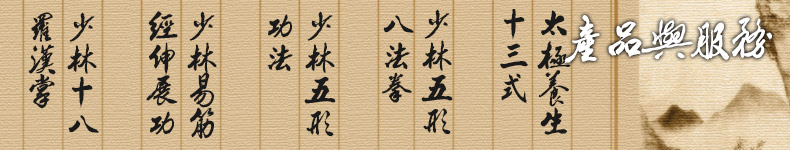 產品與服務
太極養生
十三式
少林五形
八法拳
少林五形
功法
少林易筋
經伸展功
少林十八
羅漢掌